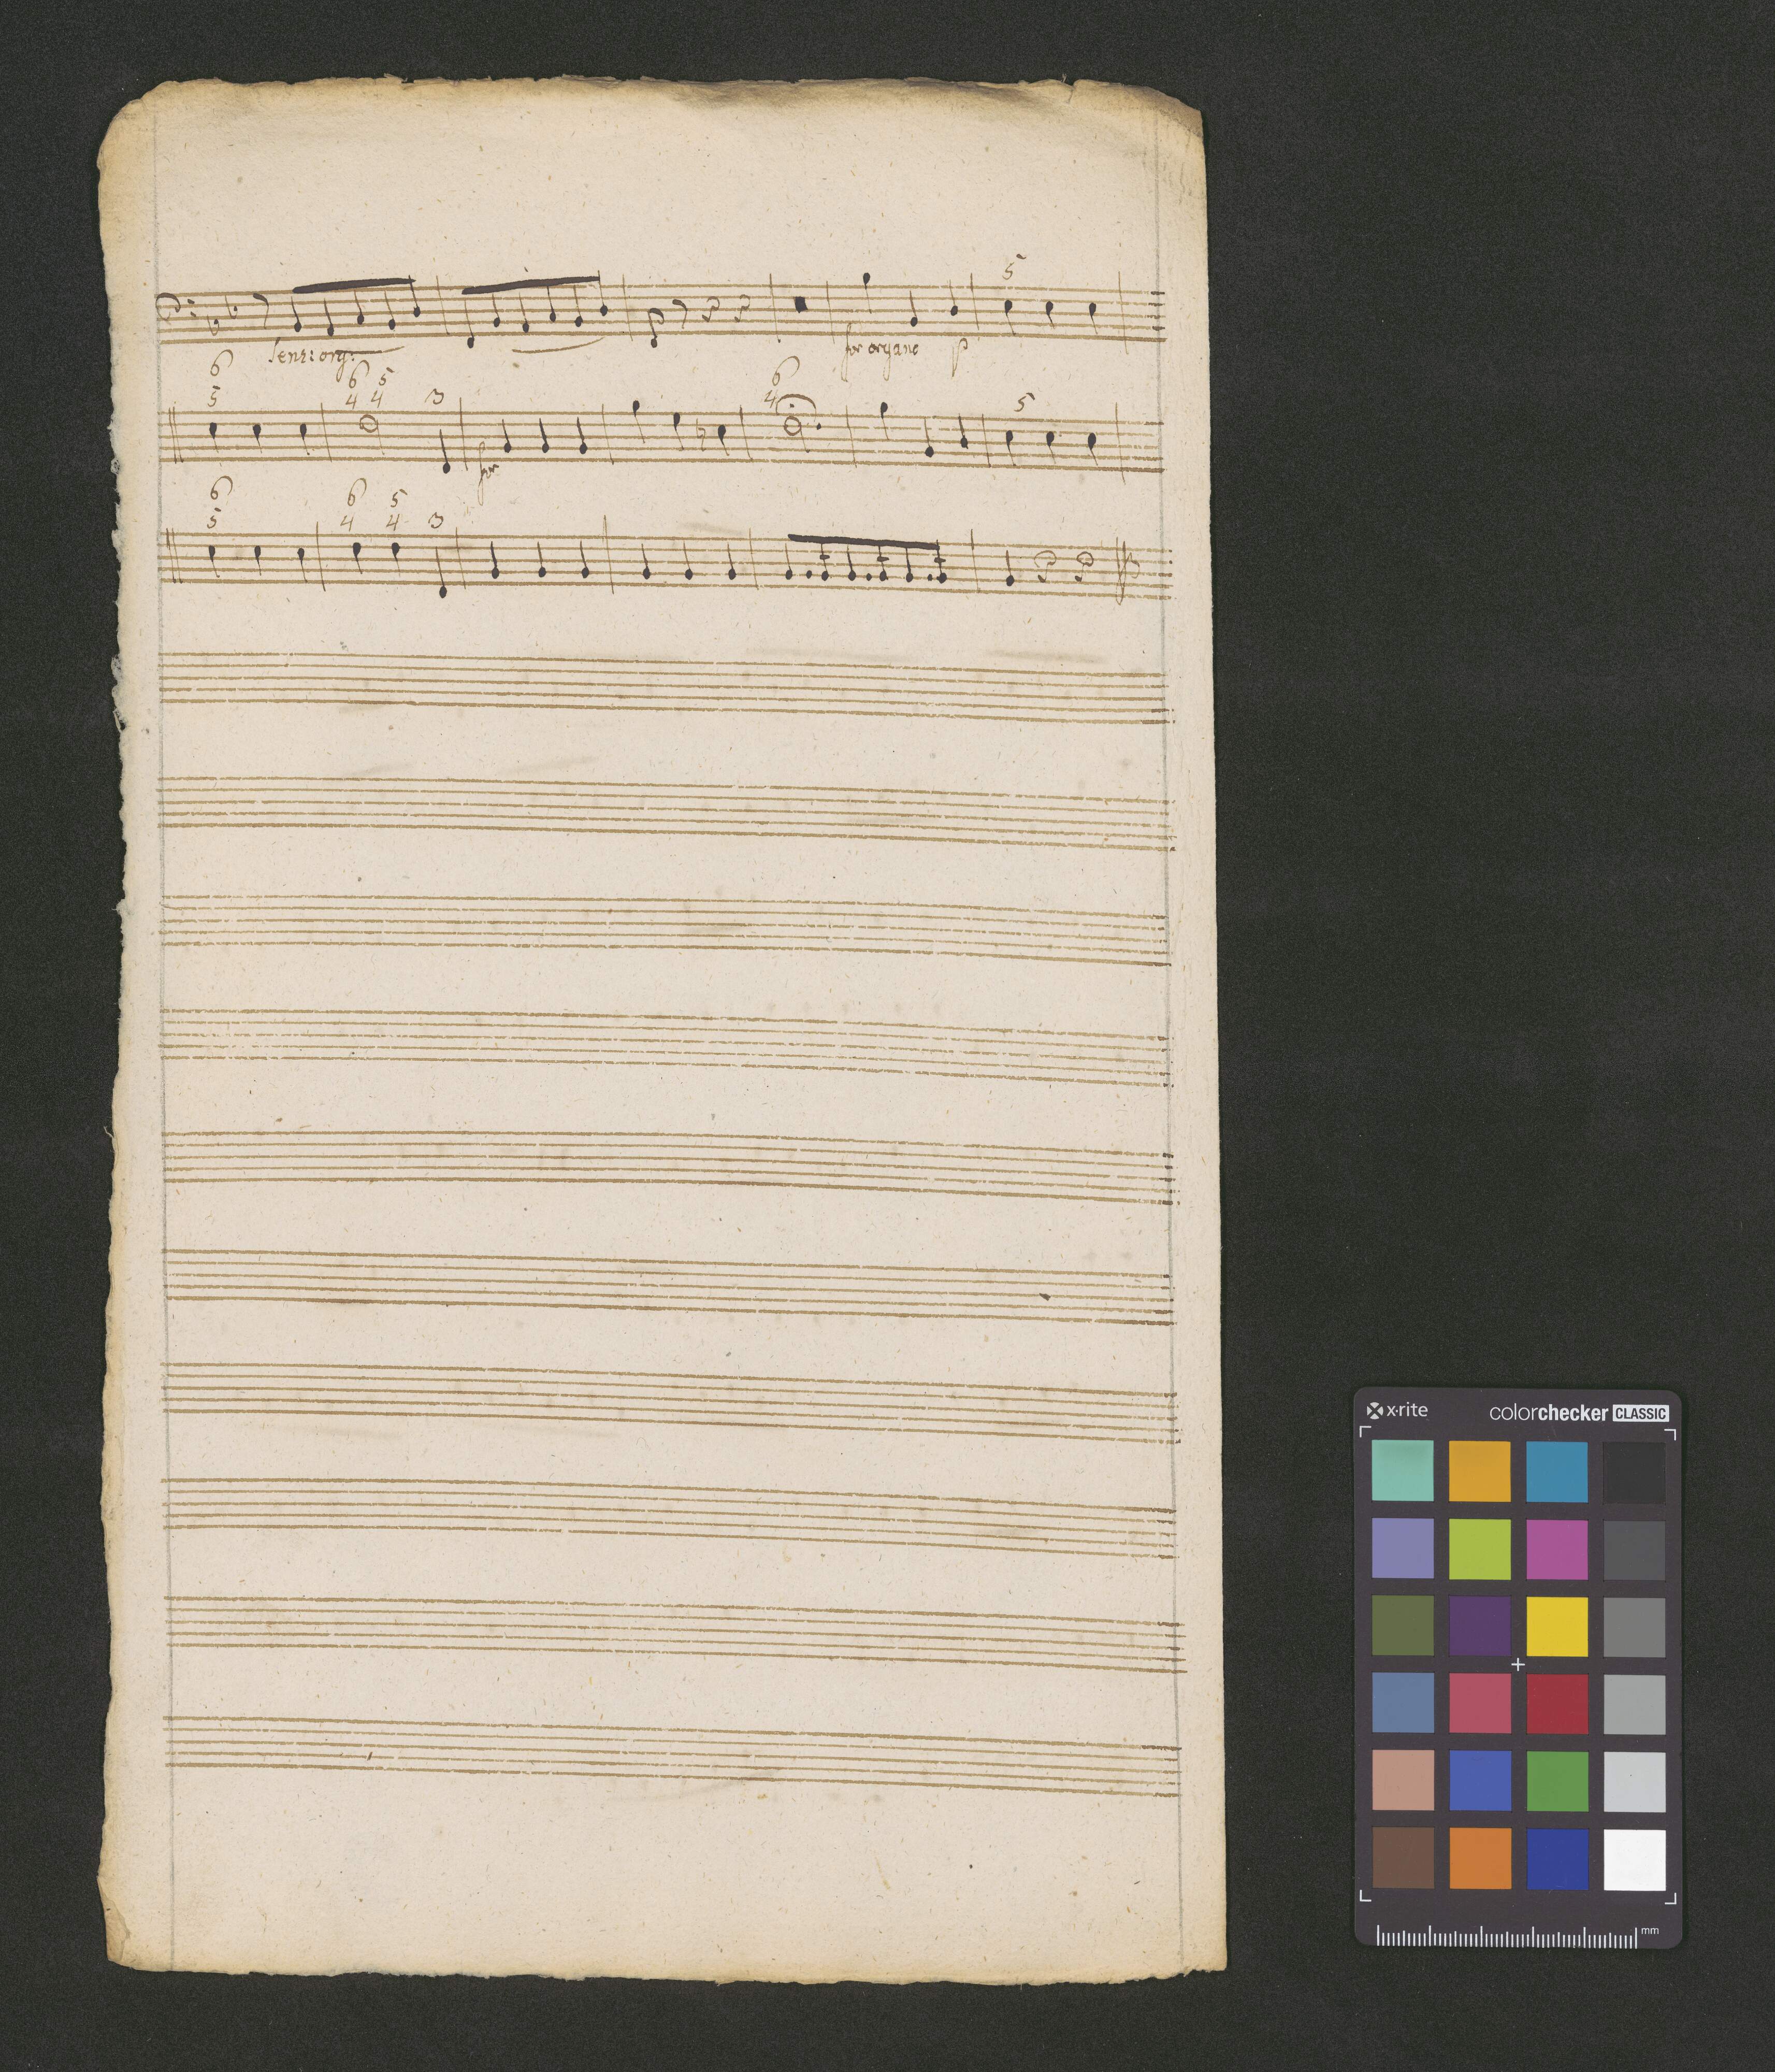 5
senz: org:
for organo p
6 6 5 6
5 4 4 3 4 5
for
6 6 5
5 4 4 3
x·rite colorchecker CLASSIC
mm